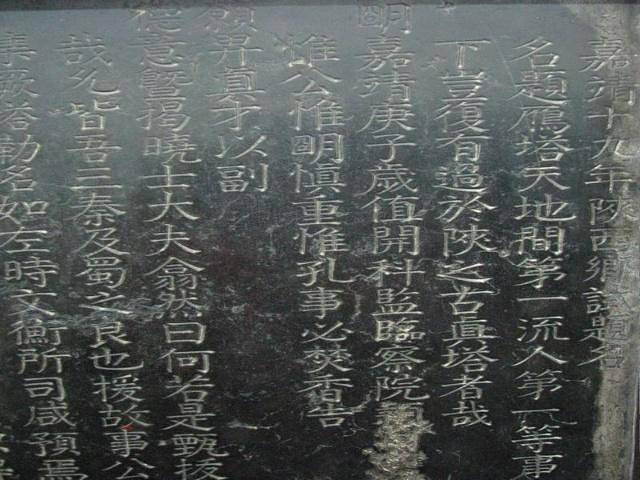 嘉靖十九年陝西鄉試題名
名題鴈塔天地間第一流人第一等事
下豈復有過於陝之古眞塔者哉
明嘉靖庚子歲值開科監臨察院
惟公惟明慎重惟孔事必焚香告
願昇眞才以副
從意暨揭曉士大夫翕然曰何若是甄拔
哉允皆吾三秦及蜀之良也援故事公
集塔勒名如左時文衡所司咸預焉